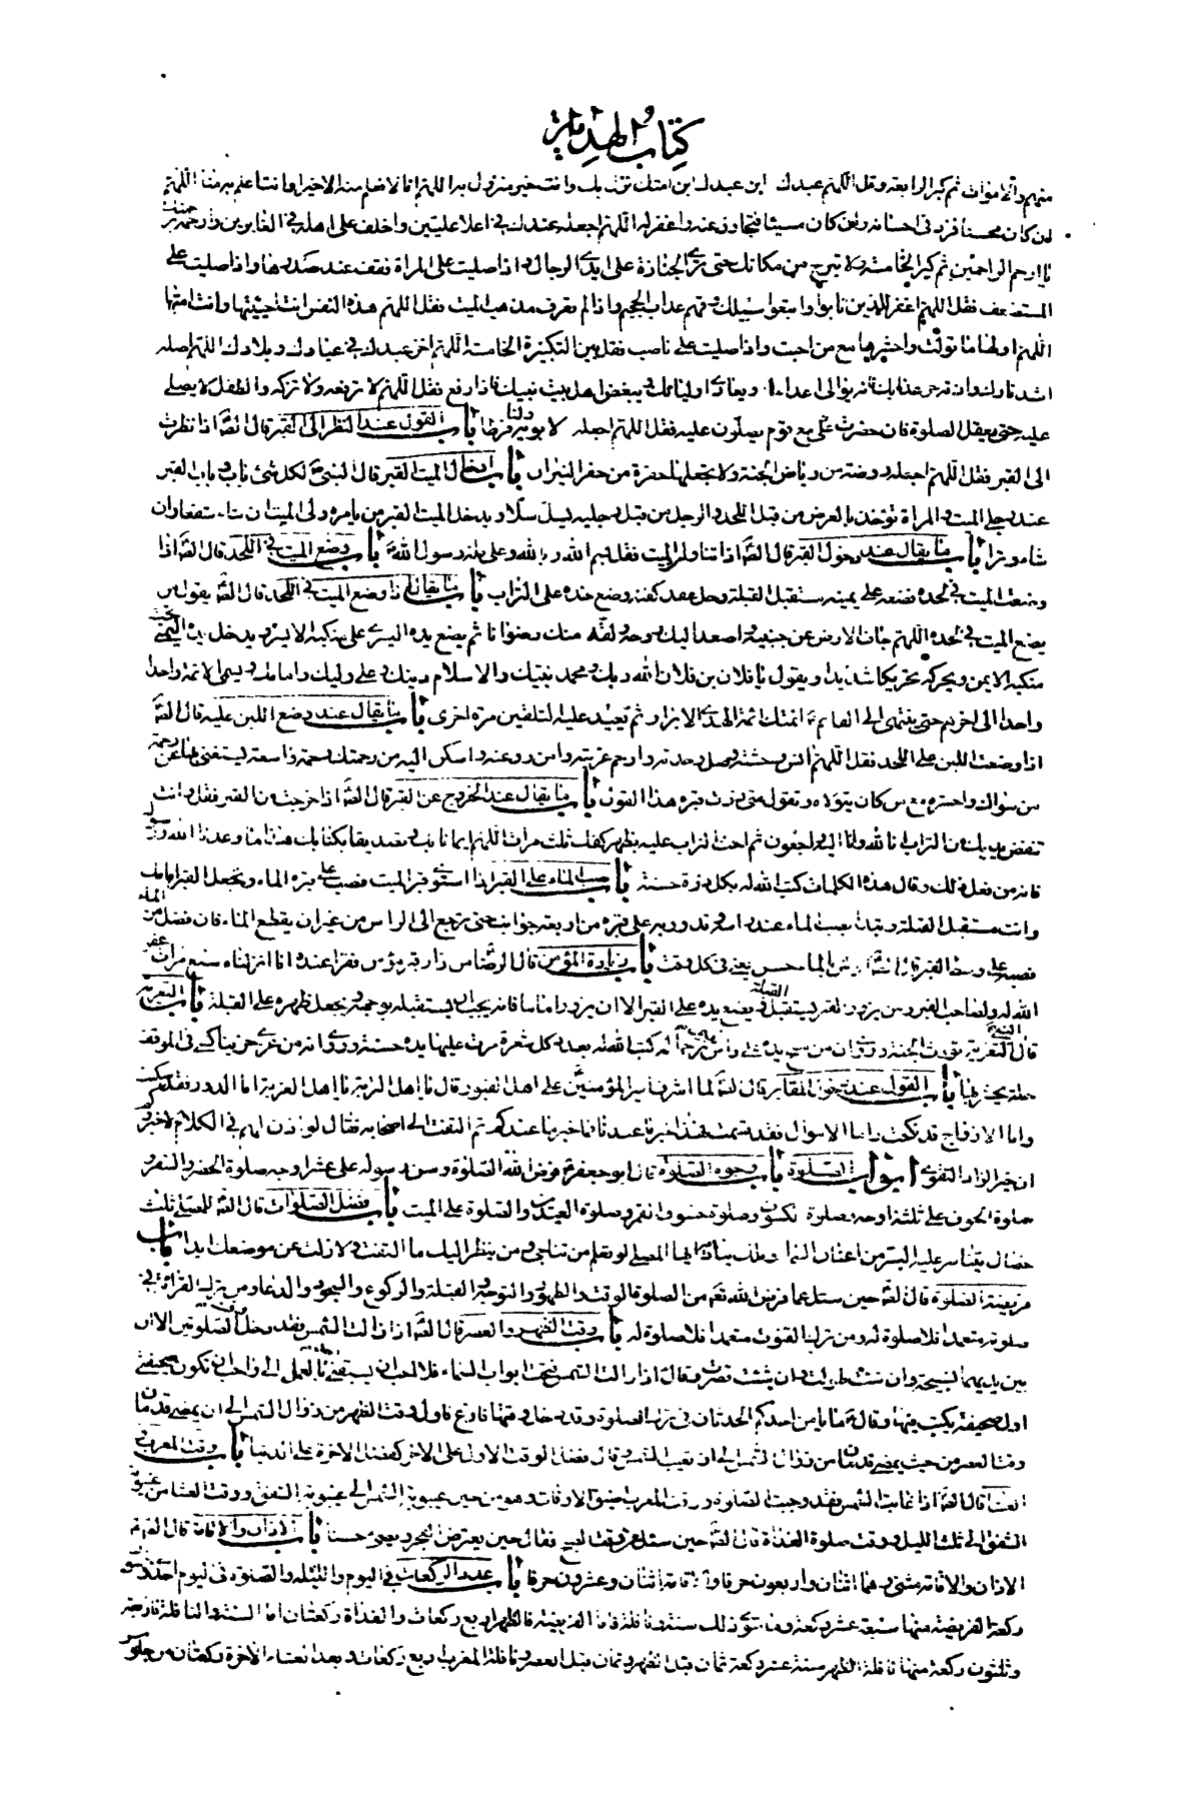 كتاب الهداية
منهم والاموات ثم كبر الرابعة وقل اللهم عبدك ابن عبدك ابن امتك نزل بك وانت خير منزول به اللهم انا لا نعلم منه الا خيرا وانت اعلم به منا اللهم
ان كان محسنا فزد فى احسانه وان كان مسيئا فتجاوز عنه واغفر له اللهم اجعله عندك فى اعلا عليين واخلف على اهله فى الغابرين وارحمه برحمتك
يا ارحم الراحمين ثم كبر الخامسة ولا تبرح من مكانك حتى ترى الجنازة على ايدى الرجال واذا صليت على المراة فقف عند صدرها واذا صليت على
المستضعف فقل اللهم اغفر للذين تابوا واتبعوا سبيلك وقهم عذاب الجحيم واذا لم تعرف مذهب الميت فقل اللهم هذه النفس انت احييتها وانت امتها
اللهم اولها ما تولت واحشرها مع من احبت واذا صليت على ناصب فقل بين التكبيرة الخامسة اللهم اخز عبدك فى عبادك وبلادك اللهم اصله
اشد نارك اللهم اذقه حر عذابك فانه يوالى اعداءك ويعادى اوليائك ويبغض اهل بيت نبيك فاذا رفع فقل اللهم لا ترفعه ولا تزكه والطفل لا يصلى
عليه حتى يعقل الصلوة فان حضرت مع قوم يصلون عليه فقل اللهم اجعله لابويه ولنا فرطا باب القول عند النظر الى القبر قال الصّ اذا نظرت
الى القبر فقل اللهم اجعله روضة من رياض الجنة ولا تجعلها حفرة من حفر النيران باب ادخال الميت القبر قال النبى لكل شئ باب وباب القبر
عند رجلى الميت والمراة تؤخذ بالعرض من قبل اللحد والرجل من قبل رجليه يسل سلا ويدخل الميت القبر من يامره ولى الميت ان شاء شفعا وان
شاء وترا باب ما يقال عند دخول القبر قال الصّ اذا تناولت الميت فقل بسم الله وبالله وعلى ملة رسول الله باب وضع الميت فى اللحد قال الصّ اذا
وضعت الميت فى لحده فضعه على يمينه مستقبل القبلة وحل عقد كفنه وضع خده على التراب باب ما يقال اذا وضع الميت فى اللحد قال الصّ يقول من
يضع الميت فى لحده اللهم جاف الارض عن جنبيه واصعد اليك روحه ولقه منك رضوانا ثم يضع يده اليسرى على منكبه الايسر ويدخل يده اليمنى تحت
منكبه الايمن ويحركه تحريكا شديدا ويقول يا فلان بن فلان الله ربك ومحمد نبيك والاسلام دينك وعلى وليك وامامك ويسمى الائمة واحدا
واحدا الى اخرهم حتى ينتهى الى القائم ع ائمتك ائمة الهدى الابرار ثم تعيد عليه التلقين مرة اخرى باب ما يقال عند وضع اللبن عليه قال الصّ
اذا وضعت اللبن على اللحد فقل اللهم انس وحشته وصل وحدته وارحم غربته وامن روعته واسكن اليه من رحمتك رحمة واسعة يستغنى بها عن رحمة
من سواك واحشره مع من كان يتولاه وتقول متى زرت قبره هذا القول باب ما يقال عند الخروج عن القبر قال الصّ اذا خرجت من القبر فقل وانت
تنفض يديك من التراب انا لله وانا اليه راجعون ثم احث التراب عليه بظهر كفك ثلث مرات اللهم ايمانا بك وتصديقا بكتابك هذا ما وعدنا الله ورسوله
فانه من فعل ذلك وقال هذه الكلمات كتب الله له بكل ذرة حسنة باب صب الماء على القبر اذا استوى قبر الميت فصب على قبره الماء وتجعل القبر امامك
وانت مستقبل القبلة وتبدا بصب الماء عند راسه وتدور به على قبره من اربعة جوانبه حتى ترجع الى الراس من غير ان يقطع الماء فان فضل من الماء
فصبه على وسط القبر باب زيارة المؤمن قال الرضا من زار قبر مؤمن فقرا عنده انا انزلناه سبع مرات غفر
الله له ولصاحب القبر ومن يزور القبر يستقبل القبلة ويضع يده على القبر الا ان يزور اماما فانه يجب ان يستقبله بوجهه ويجعل ظهره على القبلة باب التعزية
قال النبى التعزية تورث الجنة وروى ان من مسح يده على راس يتيم ترحما له كتب الله له بعدد كل شعرة مرت عليها يده حسنة وروى انه من عزى حزينا كسى فى الموقف
حلة يحبر بها باب القول عند دخول المقابر قال الصّ لما اشرف امير المؤمنين على اهل القبور قال يا اهل التربة يا اهل الغربة اما الدور فقد سكنت
واما الازواج فقد نكحت واما الاموال فقد قسمت فهذا خبر ما عندنا فما خبر ما عندكم ثم التفت الى اصحابه فقال لو اذن لهم فى الكلام لاخبروكم
ان خير الزاد التقوى ابواب الصلوة باب وجوه الصلوة قال ابو جعفر فرض الله الصلوة وسن رسوله على عشرة اوجه صلوة الحضر والسفر و
صلوة الخوف على ثلثة اوجه وصلوة كسوف وصلوة خسوف القمر وصلوة العيدين والصلوة على الميت باب فضل الصلوات قال الصّ للمصلى ثلث
خصال يتناثر عليه البر من اعنان السماء وملك يناديه ايها المصلى لو تعلم من تناجى ومن ينظر اليك ما التفت ولا زلت عن موضعك ابدا باب
فريضة الصلوة قال الصّ حين سئل عما فرض الله نعم من الصلوة فالوقت والطهور والتوجه والقبلة والركوع والسجود والدعاء ومن ترك القراءة فى
صلوته متعمدا فلا صلوة له ومن ترك القنوت متعمدا فلا صلوة له باب وقت الظهر والعصر قال الصّ اذا زالت الشمس فقد دخل وقت الصلوتين الا ان
بين يديهما السبحة فان شئت طولت وان شئت قصرت وقال اذا زالت الشمس فتحت ابواب السماء فلا احب ان يسبقنى بالعمل احد الى واحب ان تكون صحيفتى
اول صحيفة يكتب فيها وقال ع ما يامن احدكم الحدثان فى ترك الصلوة وقد دخل وقتها فارغ فاول وقت الظهر من زوال الشمس الى ان يمضى قدمان
وقت العصر من حيث يمضى قدمان من زوال الشمس الى ان تغيب الشمس وقال فضل الوقت الاول على الاخر كفضل الاخرة على الدنيا باب وقت المغرب و
العشاء قال الصّ اذا غابت الشمس فقد وجبت الصلوة ووقت المغرب اضيق الاوقات وهو من حين غيبوبة الشمس الى غيبوبة الشفق ووقت العشاء من غيبوبة
الشفق الى ثلث الليل ووقت صلوة الغداة قال الصّ حين سئل عن وقت الصبح فقال حين يعترض الفجر ويضىء حسنا باب الاذان والاقامة قال الصّ
الاذان والاقامة مثنى وهما اثنان واربعون حرفا الاذان عشرون حرفا والاقامة اثنان وعشرون حرفا باب عدد الركعات فى اليوم والليلة والصلوة فى اليوم احدى و خمسون
ركعة الفريضة منها سبعة عشر ركعة وما سوى ذلك سنة ونافلة فاما الفريضة فالظهر اربع ركعات والغداة ركعتان اما السنة والنافلة فاربعة
وثلثون ركعة منها نافلة الظهر ستة عشر ركعة ثمان قبل الظهر وثمان قبل العصر ونافلة المغرب اربع ركعات وبعد العشاء الاخرة ركعتان من جلوس